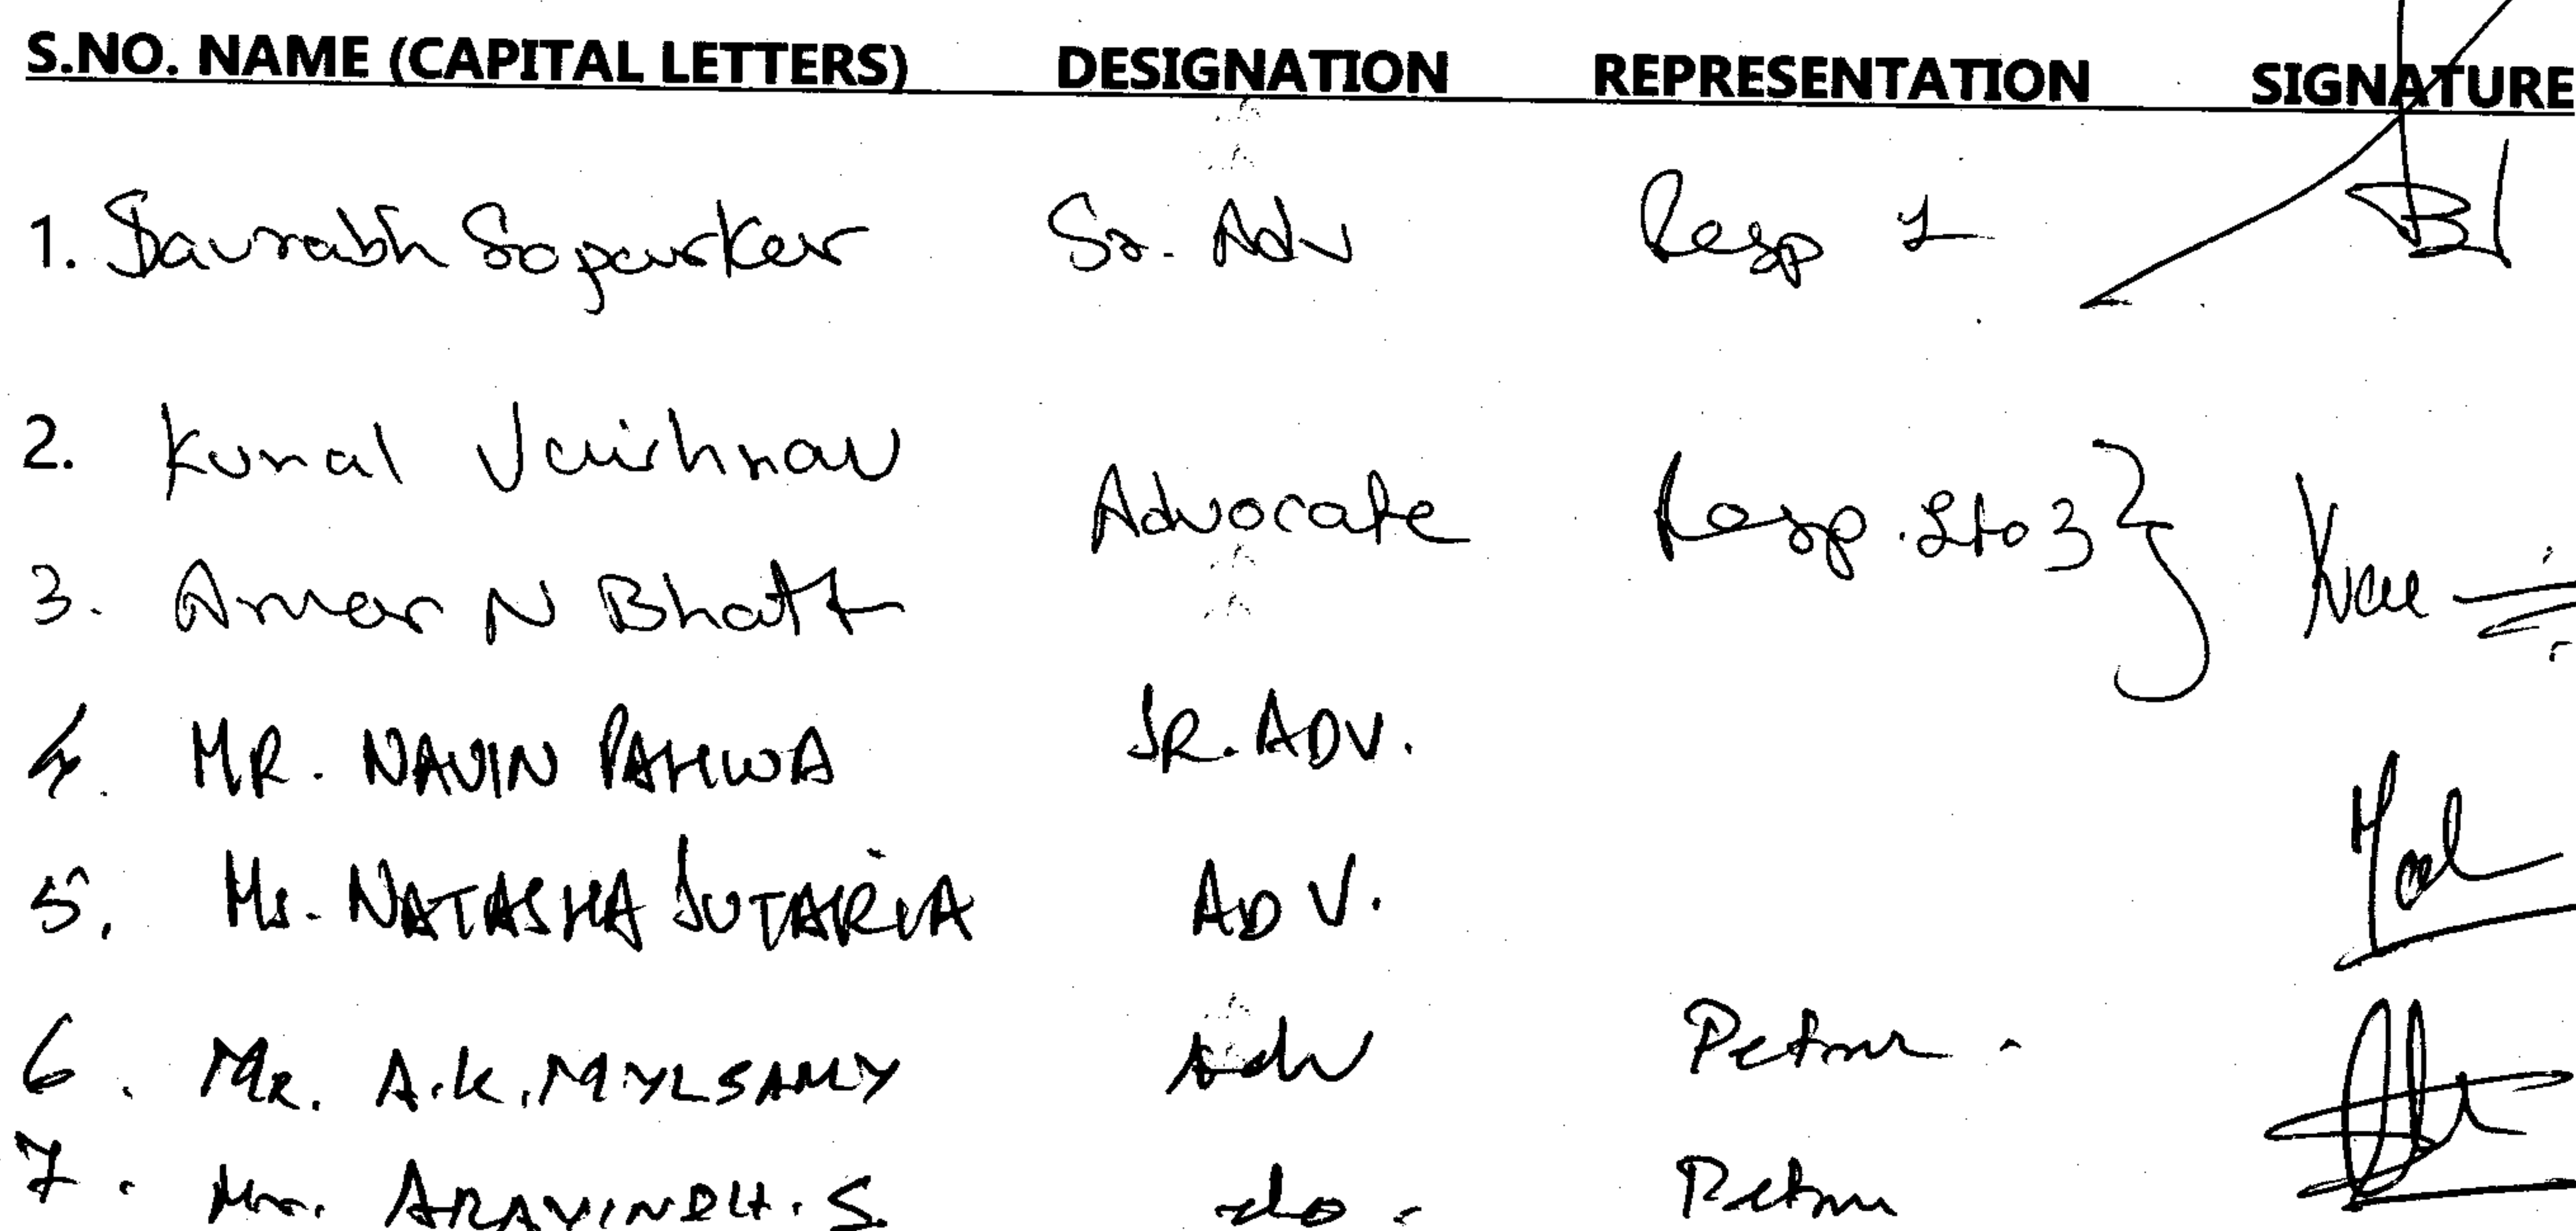 S.NO. NAME (CAPITAL LETTERS) DESIGNATION REPRESENTATION SIGNATURE
1. Saurabh Soparkar Sr. Adv Resp 1
2. Kunal Vaishnav
Advocate Resp. 2 to 3 }
3. Amar N Bhatt
4. MR. NAVIN PAHWA SR. ADV.
5. Ms. NATASHA SUTARIA ADV.
6. MR. A.K. MYLSAMY Adv
7. Mr. ARAVINDH. S. -do-